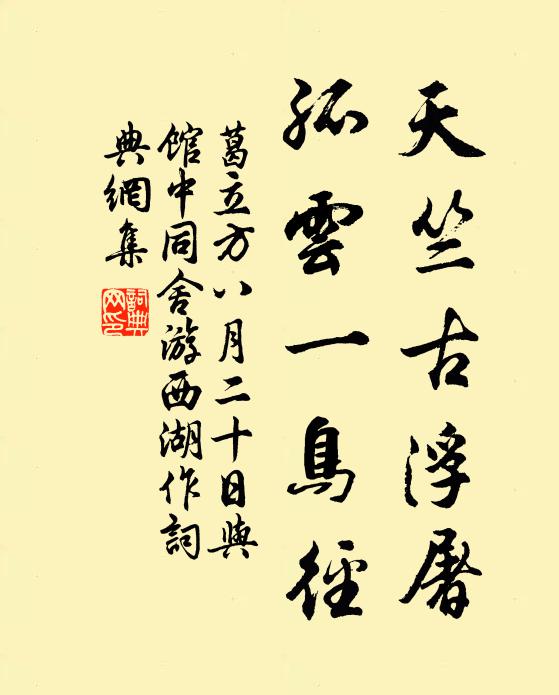 天竺古浮屠
孤雲一鳥徑
葛立方八月二十日與
館中同舍游西湖作詞
典網集
詞典
网印